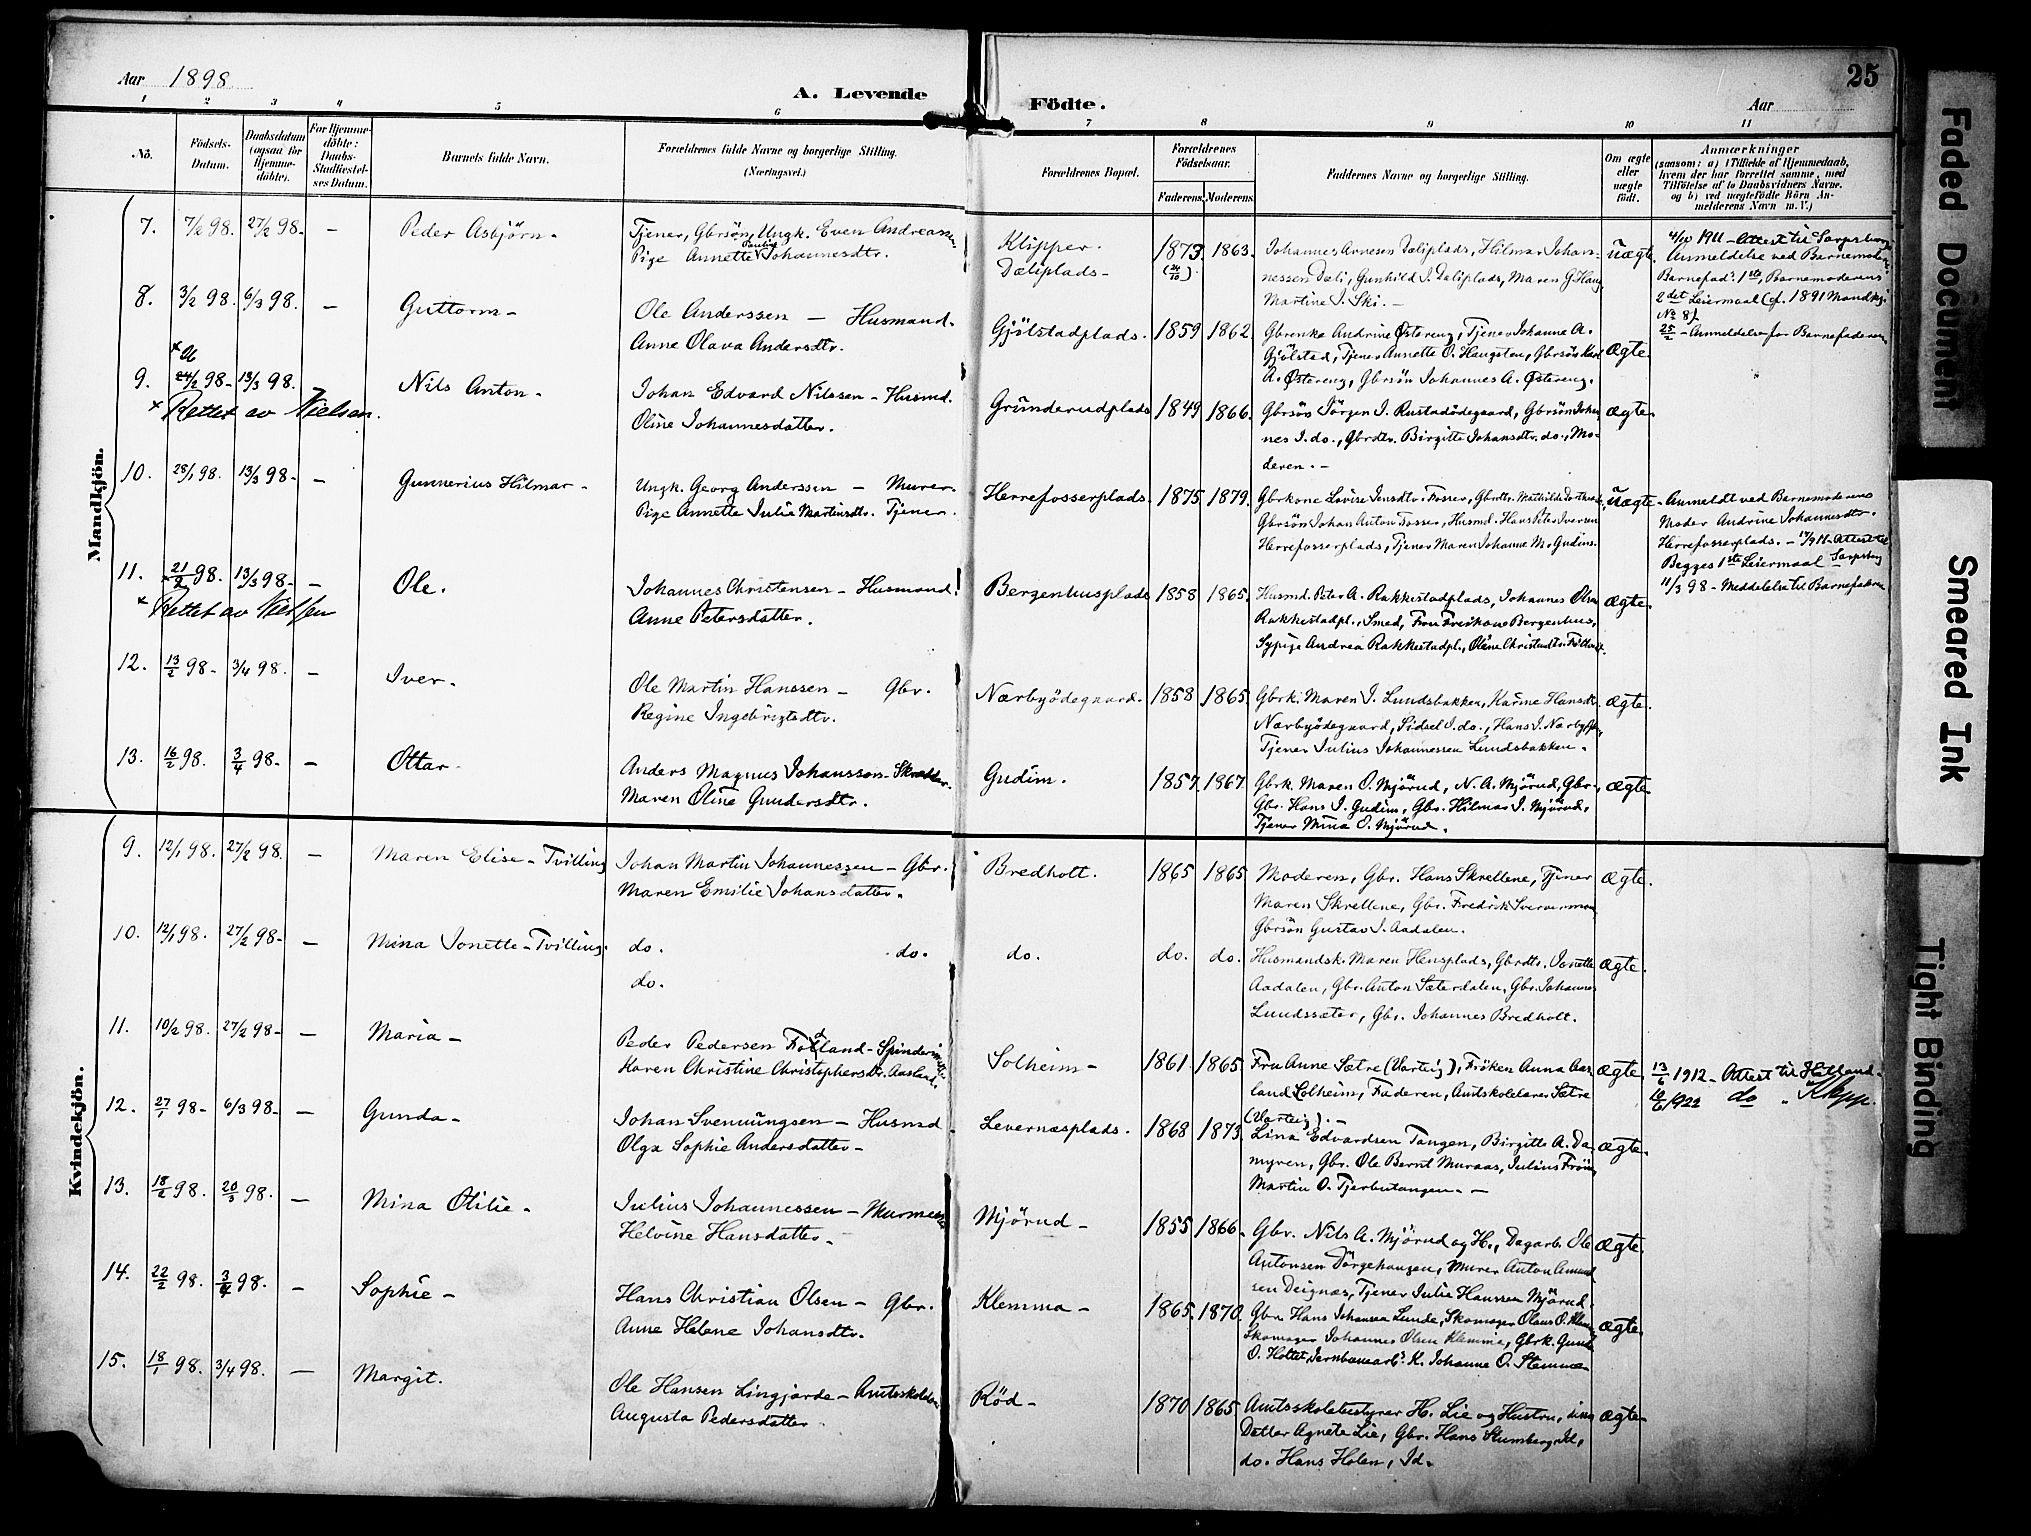 Aar 1898
A. Levende
Födte.
Aar
25
1 2 3 4 5 6 7 8 9 10 11
No.
Födsels-Datum.
Daabsdatum (ogsaa for Hjemme-döbte).
For Hjemme-döbte: Daabs-Stadfæstel-ses Datum.
Barnets fulde Navn.
Forældrenes fulde Navne og borgerlige Stilling.
(Næringsvei.)
Forældrenes Bopæl.
Forældrenes Födselsaar.
Faderens. Moderens.
Faddernes Navne og borgerlige Stilling.
Om ægte eller uægte födt.
Anmærkninger
(saasom: a) i Tilfælde af Hjemmedaab,
hvem der har forrettet samme, med
Tilföielse af to Daabsvidners Navne.
og b) ved uægtefödte Börn An-
melderens Navn m. V.)
Mandkjön.
7. 7/2 98. 27/2 98. - Peder Asbjörn. Tjener, Gbrsön, Ungk. Even Andreassen
Pige Annette Pauline Johannesdtr.
Klipper. Dæliplads - 1873 (24/10) 1863.
Johannes Arnesen Dæliplads, Hilmar Johan-
nessen Dæli, Gunhild J. Dæliplads, Maren G. Haug,
Martine J. Ski. - uægte
4/10 1911 - Attest til Sarpsborg.
Anmeldelse ved Barnemoderen
Barnefad: 1ste, Barnemoderens
2det Leiermaal (cf. 1891 Mandkj.
No 8)
25/2 - Anmeldelse for Barnefaderen
8. 3/2 98. 6/3 98. - Guttorm - Ole Anderssen - Husmand.
Anne Olava Andersdtr.
Gjölstadplads. 1859 1862.
Gbrenke Andrine Østereng, Tjener Johanne A.
Gjölstad, Tjener Annette O. Haugsten, Gbrsön Karl
A. Østereng, Gbrsön Johannes A. Østereng. ægte.
9. 24/2 98 - 13/3 98. Nils Anton - Johan Edvard Nilssen - Husmd.
× Rettet av Nielsen.
Oline Johannesdatter.
Gründerudplads 1849 1866.
Gbrsön Jörgen J. Rustadödegaard, Gbrsön Johan
nes J. do., Gbrdtr. Birgitte Johansdtr. do., Mo-
deren. - ægte.
10. 28/1 98. 13/3 98 - - Gunnerius Hilmar - Ungk. Georg Anderssen - Murer.
Pige Annette Julie Martinsdtr. Tjener.
Herrefosserplads. 1875 1879.
Gbrkone Lovise Jensdtr. Fosser, Gbrdtr. Mathilde
Gbrsön Johan Anton Fosser, Husmd. Hans Peter Iversen
Herrefosserplads, Tjener Maren Johanne M. Gudim. uægte -
Anmeldt ved Barnemoderens
Moder Andrine Johannesdtr.
Herrefosserplads. - Attest til
Begges 1ste Leiermaal Sarpsborg
11/3 98 - Meddelelse til Barnefaderen
11. 21/2 98. 13/3 98 - - Ole. Johannes Christensen - Husmand.
× Rettet av Nielsen
Anne Petersdatter.
Bergenhusplads 1858 1865.
Husmd. Peter A. Rakkestadplads, Johannes Olsen
Rakkestadpl., Smed, Fru Bergenhus,
Sypige Andrea Rakkestadpl., Oline Christiansdtr. ægte.
12. 13/2 98 - 3/4 98. - Iver. Ole Martin Hanssen - Gbr.
Regine Ingebrigtsdtr.
Nærbyödegaard. 1858 1865.
Gbrk. Maren J. Lundsbakken, Karine Hansdtr.
Nærbyödegaard, Sidsel J. do., Hans J. Nærby
Tjener Julius Johannessen Lundsbakken. ægte.
13. 16/2 98. 3/4 98 - - Ottar. Anders Magnus Johansson - Skrædder.
Maren Oline Gundersdtr.
Gudim. 1857. 1867
Gbrk. Maren O. Mjörud, N. A. Mjörud, Gbr.,
Gbr. Hans J. Gudim, Gbr. Hilmar J. Mjörud,
Tjener Mina O. Mjörud. ægte.
Kvindekjön.
9. 12/1 98. 27/2 98. - Maren Elise - Tvilling Johan Martin Johannessen - Gbr.
Maren Emilie Johansdatter.
Bredholt. 1865 1865
Moderen, Gbr. Hans Skrellene, Tjener
Maren Skrellene, Gbr. Fredrik
Gbrsön Gustav J. Aadalen. ægte.
10. 12/1 98. 27/2 98 - - Mina Jonette - Tvilling. do. do.
do.
do. do. do.
Husmandsk. Maren Hensplads, Gbrdtr. Jonette
Aadalen, Gbr. Anton Sæterdalen, Gbr. Johannes
Lundssæter, Gbr. Johannes Bredholt. ægte.
11. 10/2 98. 27/2 98 - - Maria - Peder Pedersen Folland - Spinderimester
Karen Christine Christophersdtr. Aasland.
Solheim - 1861. 1865.
Fru Anne Sætre (Varteig), Fröken Anna Aas-
land Solheim, Faderen, Amtskolelærer Sætre
(Varteig). - ægte.
13/6 1912 - Attest til
1922 do " Klepp.
12. 27/1 98 - 6/3 98. - Gunda - Johan Svenningsen - Husmd.
Olga Sophie Andersdatter -
Levernæsplads. 1868 1873.
Lina Edvardsen Tangen, Birgitte A. Da-
myren, Gbr. Ole Bernt Muraas, Julius
Martin O. Tjerbutangen. - ægte.
13. 18/2 98. 20/3 98. - Mina Otilie - Julius Johannessen - Murmester
Helvine Hansdatter -
Mjørud - 1855 1866.
Gbr. Nils A. Mjørud og H., Dagarb. Ole
Antonsen Dörgehaugen, Murer Anton Amund
sen Deignæs, Tjener Julie Hanssen Mjørud. ægte.
14. 22/2 98. 3/4 98. - Sophie - Hans Christian Olsen - Gbr.
Anne Helene Johansdtr.
Klemma - 1865. 1870.
Gbr. Hans Johansen Lunde, Skomager Olaus O. Klemma
Skomager Johannes Olsen Klemma, Gbrk. Gunda
O. Holtet, Jernbanearb. K. Johanne O. Stemme - ægte.
15. 18/1 98. 3/4 98. - Margit. Ole Hansen Lingjærde - Amtsskolelærer
Augusta Pedersdatter
Röd - 1870 1865
Amtsskolebestyrer H. Lie og Hustru,
Datter Agnete Lie, Gbr. Hans Stumberg, Id,
do. Hans Holen, Id. ægte -
Faded Document
Smeared Ink
Tight Binding